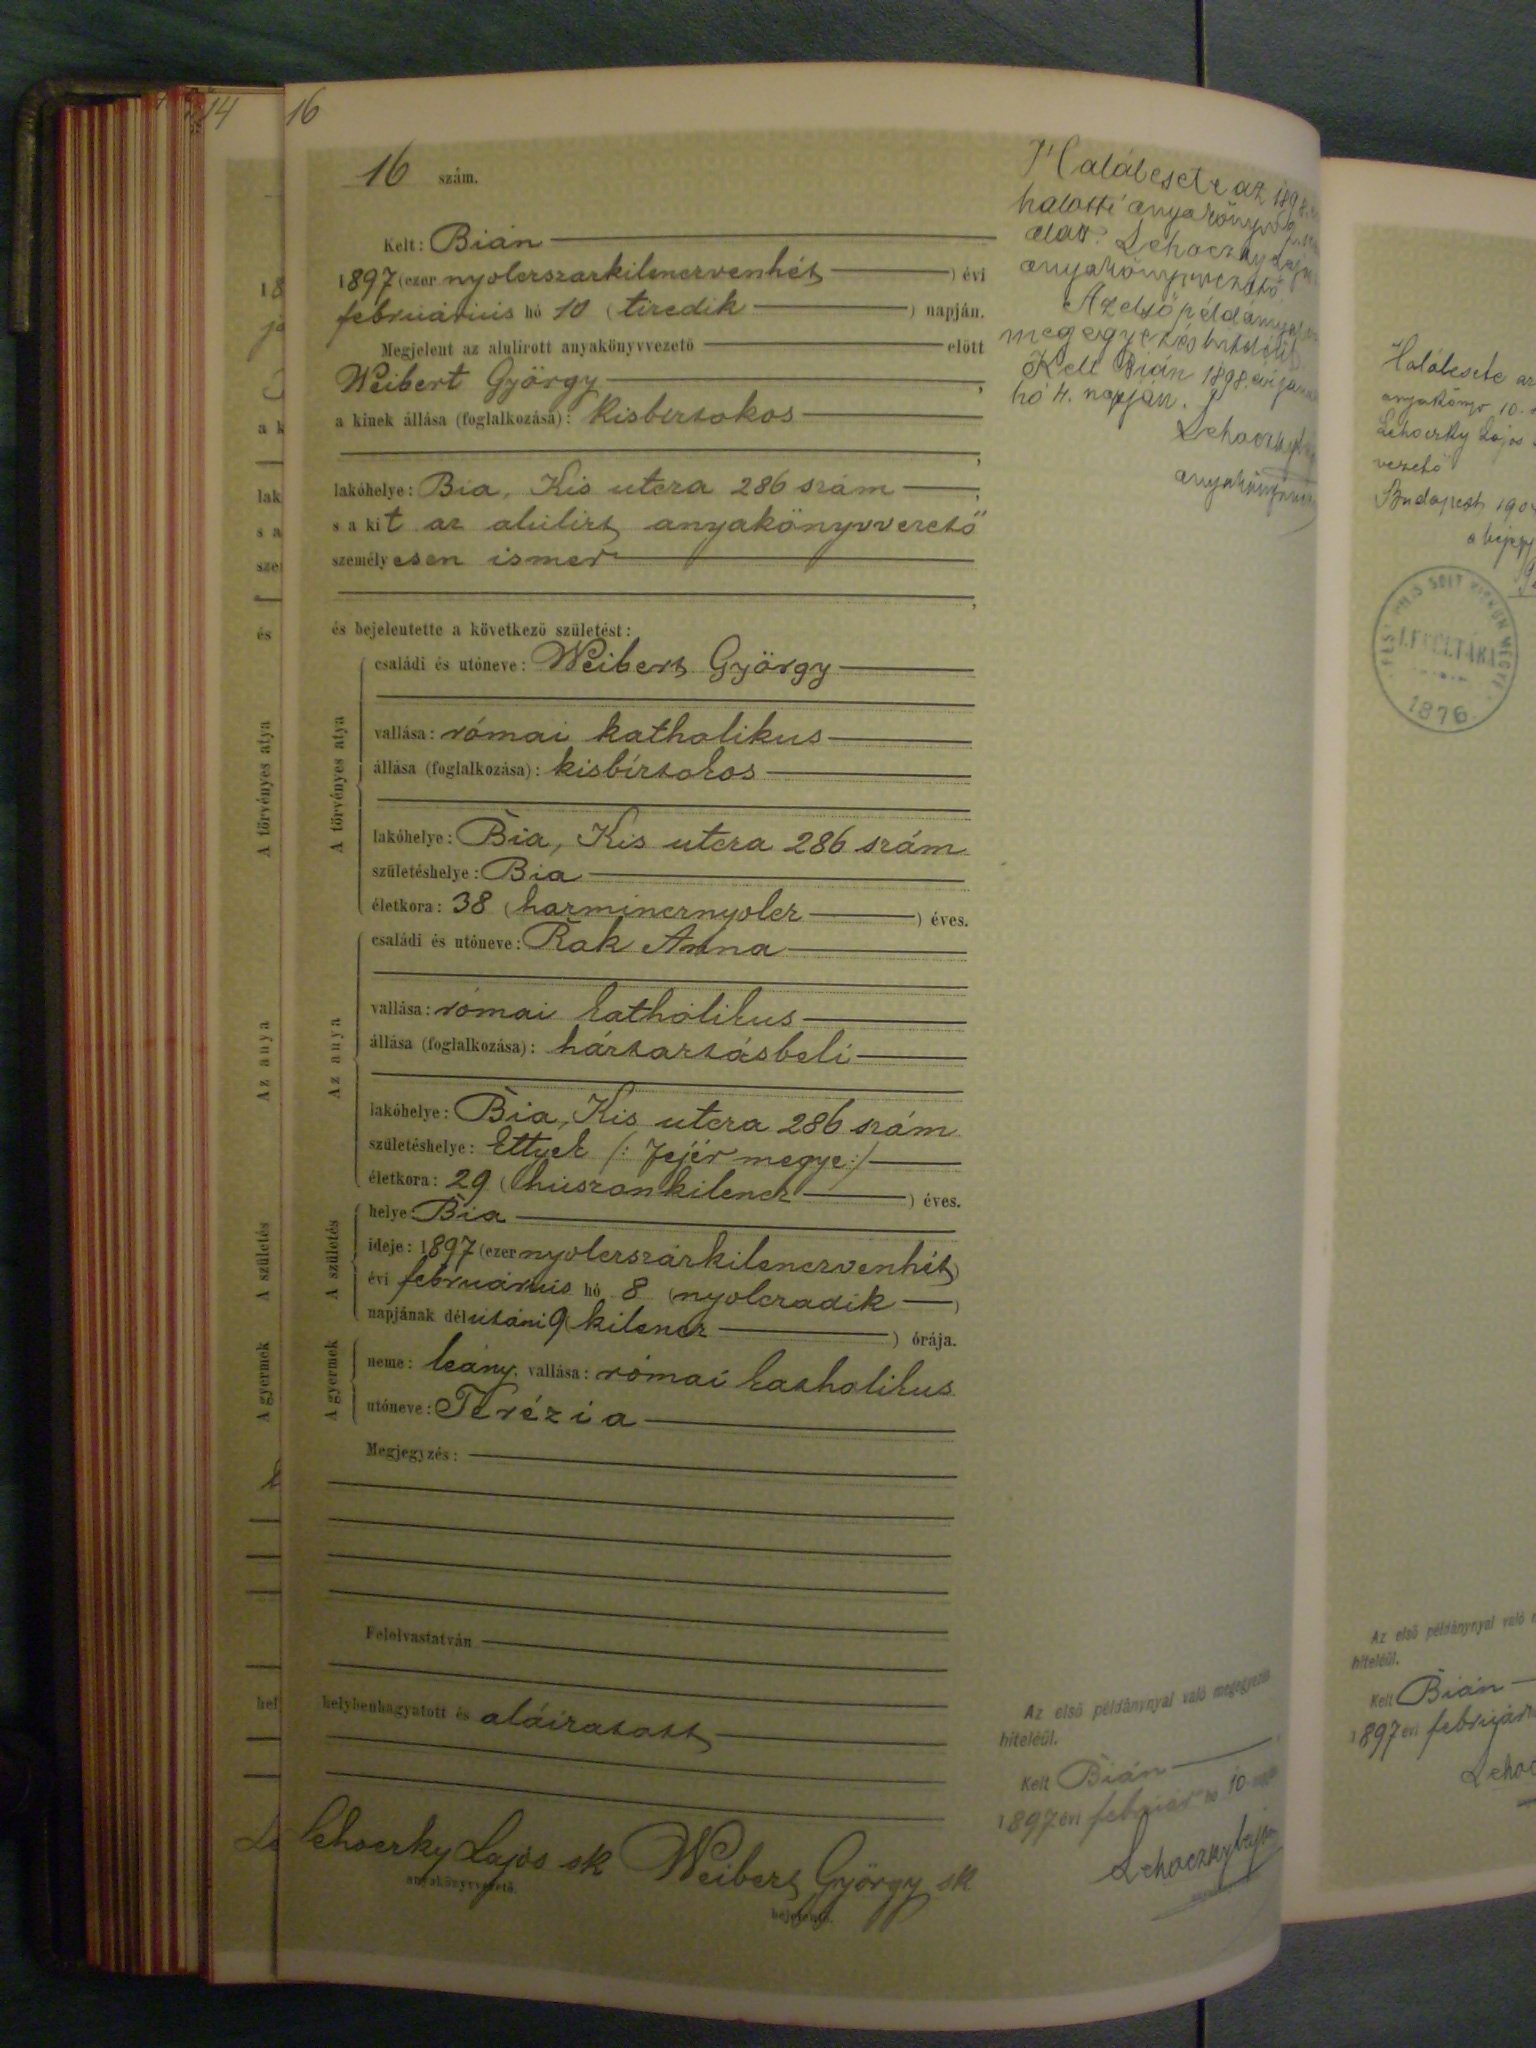 14
16
16 szám.
Kelt: Bián
1897 (ezer nyolczszázkilenczvenhét) évi
februárius hó 10 (tizedik) napján.
Megjelent az alulirott anyakönyvvezető előtt
Weibert György,
a kinek állása (foglalkozása): kisbirtokos
,
lakóhelye: Bia, Kis utcza 286 szám,
s a kit az alulirt anyakönyvvezető
személyesen ismer
,
és bejelentette a következő születést:
A törvényes atya
családi és utóneve: Weibert György
vallása: római katholikus
állása (foglalkozása): kisbirtokos
lakóhelye: Bia, Kis utcza 286 szám
születéshelye: Bia
életkora: 38 (harmincznyolcz) éves.
Az anya
családi és utóneve: Rak Anna
vallása: római katholikus
állása (foglalkozása): háztartásbeli
lakóhelye: Bia, Kis utcza 286 szám
születéshelye: Ettyek /: Fejér megye :/
életkora: 29 (huszonkilencz) éves.
A születés
helye: Bia
ideje: 1897 (ezer nyolczszázkilenczvenhét)
évi februárius hó 8 (nyolczadik)
napjának délutáni 9 (kilencz) órája.
A gyermek
neme: leány, vallása: római katholikus
utóneve: Terézia
Megjegyzés:
Felolvastatván
helybenhagyatott és aláiratott
Lehoczky Lajos sk Weibert György sk
anyakönyvvezető.
bejelentő.
Halálesete az 1898.
halotti anyakönyv
alatt. Lehoczky Lajos
anyakönyvvezető
Az első példánnyal
megegyezés hiteléül.
Kelt Bián 1898. évi január
hó 4. napján.
Lehoczky
Az első példánynyal való megegyezés
hiteléül.
Kelt Bián
1897 évi február hó 10.
Lehoczky Lajos
Halálesete az
anyakönyv 10.
Lehoczky Lajos
vezető
Budapest 190
LEVÉLTÁRA
1876
Az első példánynyal való
hiteléül.
Kelt Bián
1897 évi
A törvényes atya
Az anya
A születés
A gyermek
és